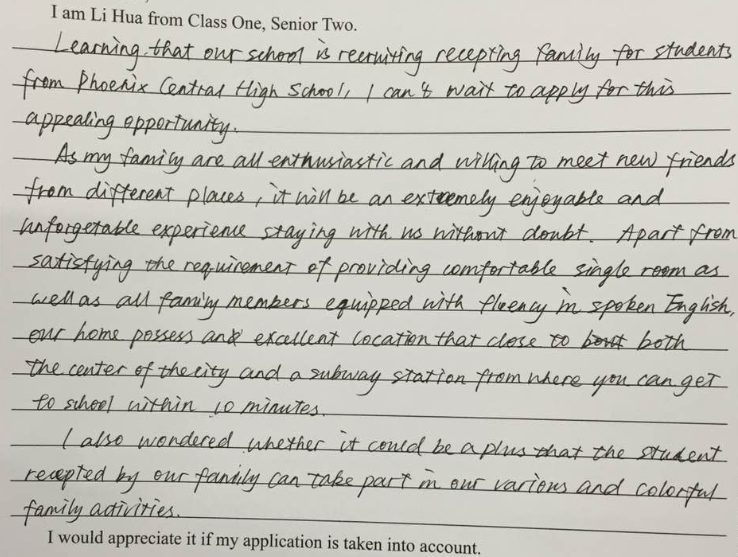 I am Li Hua from Class One, Senior Two.
Learning that our school is recruiting recepting family for students
from Phoenix Central High School, I can't wait to apply for this
appealing opportunity.
As my family are all enthusiastic and willing to meet new friends
from different places, it will be an extremely enjoyable and
unforgetable experience staying with us without doubt. Apart from
satisfying the requirement of providing comfortable single room as
well as all family members equipped with fluency in spoken English,
our home possess an excellent location that close to both
the center of the city and a subway station from where you can get
to school within 10 minutes.
I also wondered whether it could be a plus that the student
recepted by our family can take part in our various and colorful
family activities.
I would appreciate it if my application is taken into account.